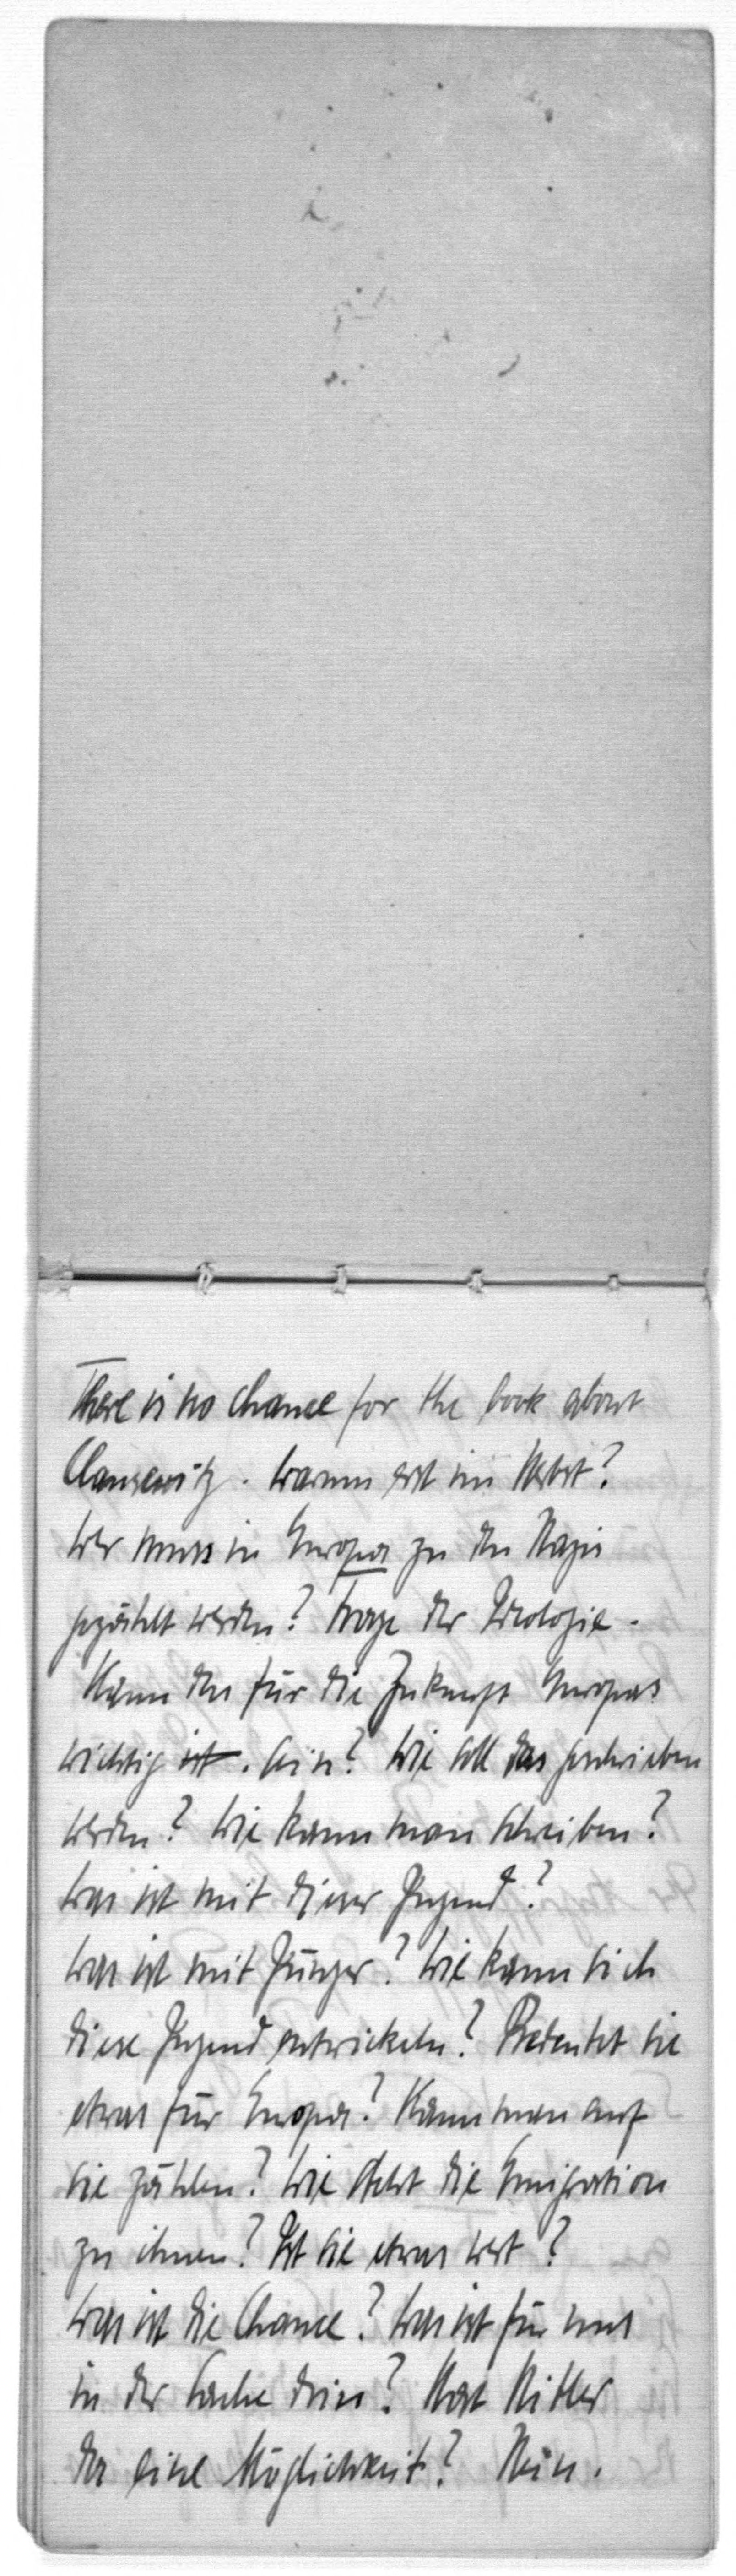 There is no chance for the book about
Clausewitz. Warum erst im Herbst?
Wer muss in Europa zu den Nazis
gezählt werden? Frage der Ideologie.
Kann das für die Zukunft Europas
wichtig ist. sein? Wie soll das geschrieben
werden? Wie kann man schreiben?
Was ist mit dieser Jugend?
Was ist mit Jünger? Wie kann sich
diese Jugend entwickeln? Bedeutet sie
etwas für Europa? Kann man auf
sie zählen? Wie steht die Emigration
zu ihnen? Ist sie etwas wert?
Was ist die Chance? Was ist für uns
in der Sache drin? Hat Hitler
da eine Möglichkeit? Nein.